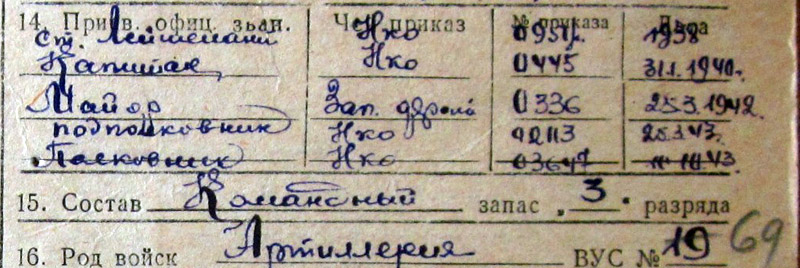 14. Присв. офиц. зван. Чей приказ № приказа Дата
ст. Лейтенант Нко 0951 1938
Капитан Нко 0445 31.1.1940г.
Майор Зап. фронт 0336 25.3.1942.
подполковник Нко 25.3.43.
Полковник Нко 03647 43.
15. Состав Командный запас „3“ разряда
16. Род войск Артиллерия ВУС № 19 69